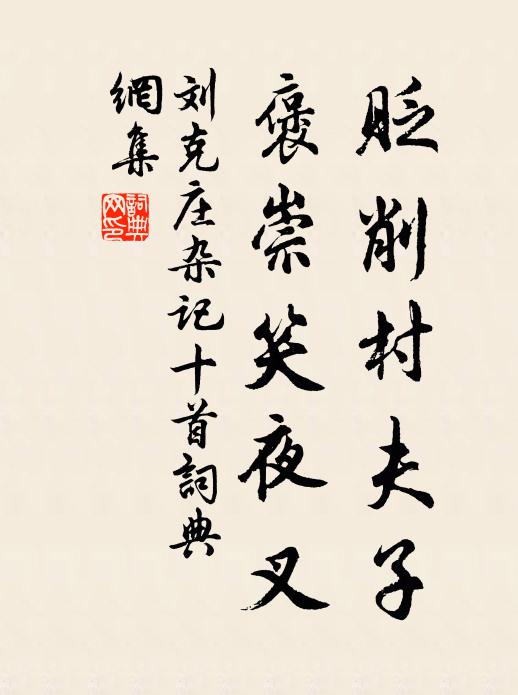 貶削村夫子
褒崇笑夜叉
刘克庄杂记十首詞典
網集
詞典
网印